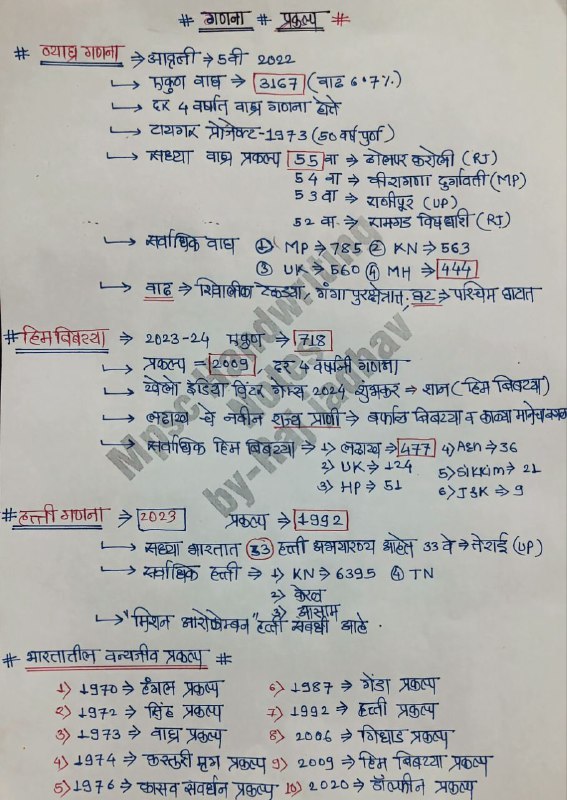 # गणना # प्रकल्प #
# व्याघ्र गणना ⇒ आवृत्ती ⇒ 5वी 2022
↳ एकुण वाघ ⇒ 3167 (वाढ 6.7%)
↳ दर 4 वर्षात वाघ गणना होते
↳ टायगर प्रोजेक्ट-1973 (50 वर्ष पुर्ण)
↳ सध्या वाघ प्रकल्प 55 वा ⇒ ढोलपर करोली (RJ)
54 वा ⇒ वीरांगणा दुर्गावती (MP)
53 वा ⇒ राणीपूर (UP)
52 वा ⇒ रामगड विषधारी (RJ)
↳ सर्वाधिक वाघ ① MP ⇒ 785 ② KN ⇒ 563
③ UK ⇒ 560 ④ MH ⇒ 444
↳ वाढ ⇒ शिवालीक टेकड्या, गंगा पुरक्षेत्रात, घट ⇒ पश्चिम घाटात
# हिम बिबट्या ⇒ 2023-24 एकुण ⇒ 718
↳ प्रकल्प = 2009, दर 4 वर्षांनी गणना
↳ खेलो इंडिया विंटर गेम्स 2024 शुभंकर ⇒ शान (हिम बिबट्या)
↳ लडाख चे नवीन राज्य प्राणी ⇒ बर्फाळ बिबट्या व काळ्या मानेचा
↳ सर्वाधिक हिम बिबट्या ⇒ 1) लडाख ⇒ 477 4) ⇒ 36
2) UK ⇒ 124 5) Sikkim ⇒ 21
3) HP ⇒ 51 6) J&K ⇒ 9
# हत्ती गणना ⇒ 2023 प्रकल्प ⇒ 1992
↳ सध्या भारतात 33 हत्ती अभयारण्य आहेत 33 वे ⇒ तेराई (UP)
↳ सर्वाधिक हत्ती ⇒ 1) KN ⇒ 6395 ④ TN
2) केरळ
3) आसाम
↳ "मिशन आरीकोम्बन" हत्ती संबंधी आहे.
# भारतातील वन्यजीव प्रकल्प #
1) 1970 ⇒ हंगल प्रकल्प 6) 1987 ⇒ गेंडा प्रकल्प
2) 1972 ⇒ सिंह प्रकल्प 7) 1992 ⇒ हत्ती प्रकल्प
3) 1973 ⇒ वाघ प्रकल्प 8) 2006 ⇒ गिधाड प्रकल्प
4) 1974 ⇒ कस्तुरी मृग प्रकल्प 9) 2009 ⇒ हिम बिबट्या प्रकल्प
5) 1976 ⇒ कासव संवर्धन प्रकल्प 10) 2020 ⇒ डॉल्फीन प्रकल्प
Mpsc Handwriting
Notes
by-Raj Jadhav